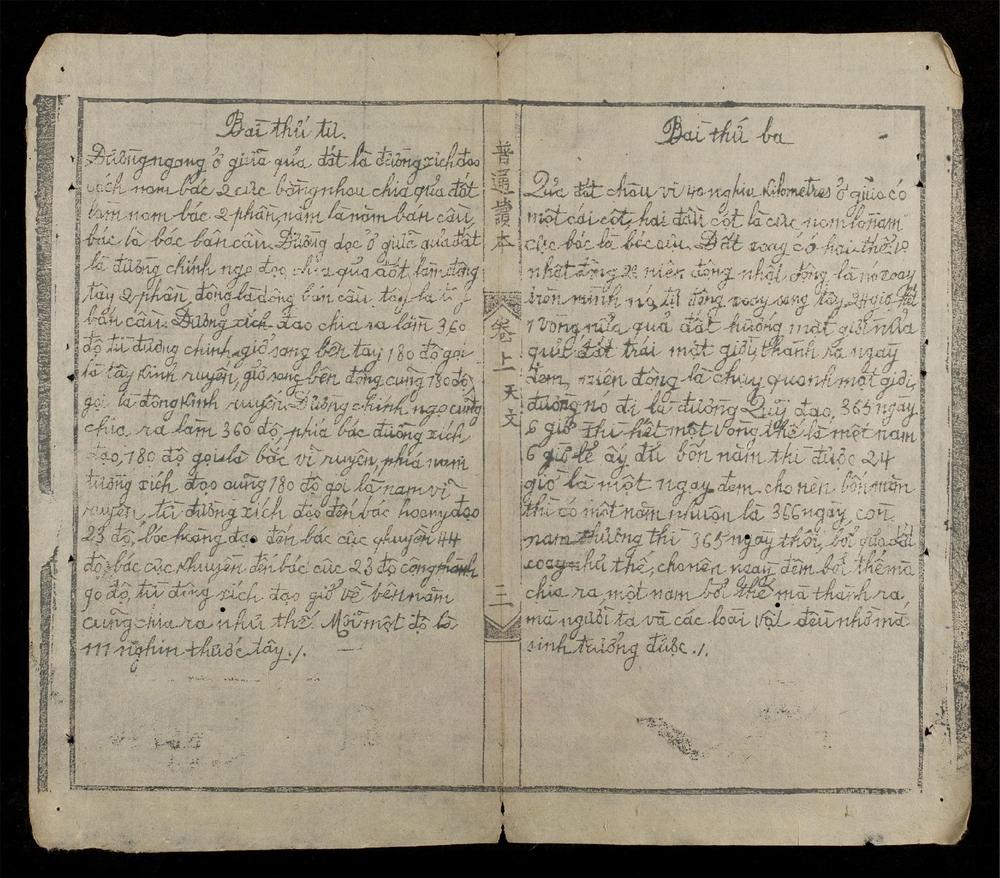 Bài thứ ba
Quả đất châu vi 40 nghìn kilometres ở giữa có
một cái cốt, hai đầu cốt là cực nam là nam
cực bắc là bắc cực. Đất xoay có hai thứ
nhật động và niên động nhật động là nó xoay
tròn mình nó, từ đông xoay sang tây, 24 giờ
1 vòng nửa quả đất hướng mặt giời nửa
quả đất trái mặt giời, thành ra ngày
đêm, niên động là chạy quanh mặt giời,
đường nó đi là đường Quỹ đạo, 365 ngày
6 giờ thì hết một vòng thế là một năm
6 giờ lẻ ấy đủ bốn năm thì được 24
giờ là một ngày đêm, cho nên bốn năm
thì có một năm nhuận là 366 ngày, còn
năm thường thì 365 ngày thôi, bởi quả đất
xoay như thế, cho nên ngày đêm bởi thế mà
chia ra, một năm bởi thế mà thành ra,
mà người ta và các loài vật đều nhờ mà
sinh trưởng được ./.
普通讀本
卷上天文
三
Bài thứ tư.
Đường ngang ở giữa quả đất là đường xích đạo
cách nam bắc 2 cực bằng nhau chia quả đất
làm nam bắc 2 phần, nam là nam bán cầu,
bắc là bắc bán cầu. Đường dọc ở giữa quả đất
là đường chính ngọ đạo, chia quả đất làm đông
tây 2 phần, đông là đông bán cầu, tây là tây
bán cầu. Đường xích đạo chia ra làm 360
độ từ đường chính giở sang bên tây 180 độ gọi
là tây kinh tuyến, giở sang bên đông cũng 180 độ,
gọi là đông kinh tuyến. Đường chính ngọ cũng
chia ra làm 360 độ, phía bắc đường xích
đạo, 180 độ gọi là bắc vĩ tuyến, phía nam
đường xích đạo cũng 180 độ gọi là nam vĩ
tuyến, từ đường xích đạo đến bắc hoàng đạo
23 độ, bắc hoàng đạo đến bắc cực khuyên 44
độ, bắc cực khuyên đến bắc cực 23 độ cộng thành
90 độ, từ đường xích đạo giở về bên nam
cũng chia ra như thế. Mỗi một độ là
111 nghìn thước tây ./.